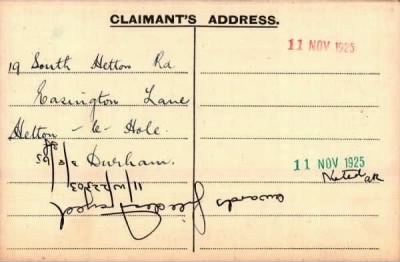 CLAIMANT'S ADDRESS.
19 South Hetton Rd
Easington Lane
Hetton-le-Hole.
Durham.
11 NOV 1925
11 NOV 1925
Noted
awards